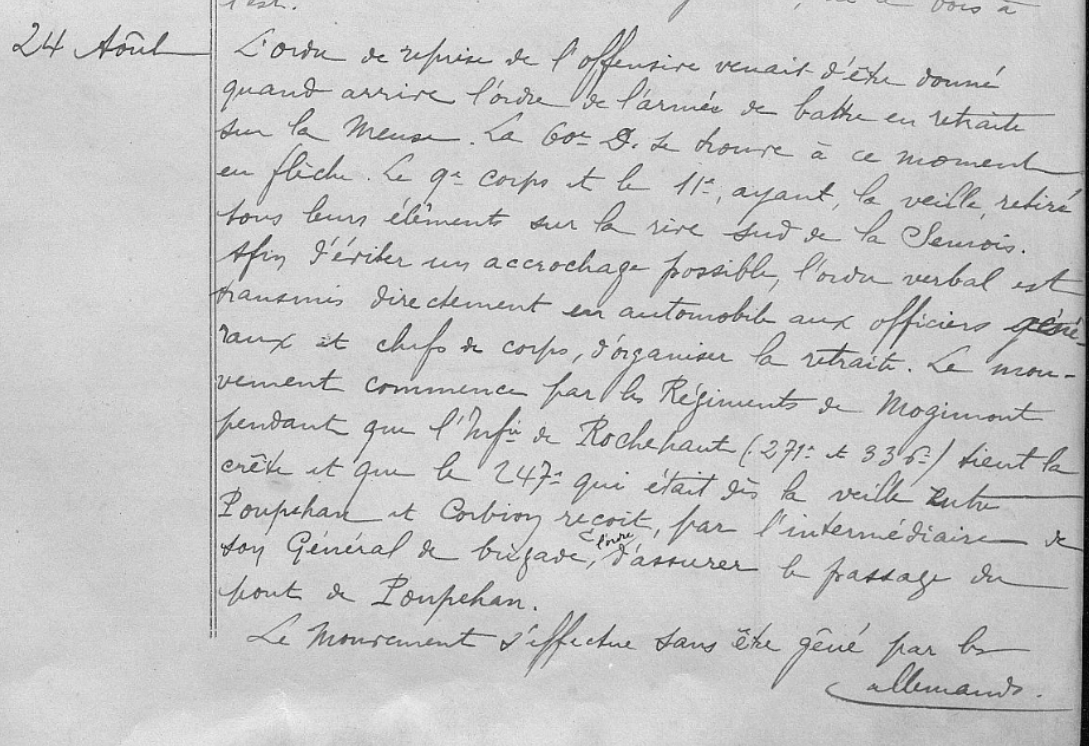 l'est.
bois à
24 Aôut
L'ordre de reprise de l'offensive venait d'être donné
quand arrive l'ordre de l'armée de battre en retraite
sur la Meuse. La 60e D. se trouve à ce moment
en flèche. Le 9e corps et le 11e, ayant, la veille, retiré
tous leurs éléments sur la rive sud de la Semois.
Afin d'éviter un accrochage possible, l'ordre verbal est
transmis directement en automobile aux officiers géné-
raux et chefs de corps, d'organiser la retraite. Le mou-
vement commence par les Régiments de Mogimont
pendant que l'Infie de Rochehaut (271e et 336e) tient la
crête et que le 247e qui était dès la veille entre
Poupehan et Corbion reçoit, par l'intermédiaire de
son Général de brigade, l'ordre d'assurer le passage du
pont de Poupehan.
Le Mouvement s'effectue sans être gêné par les
allemands.